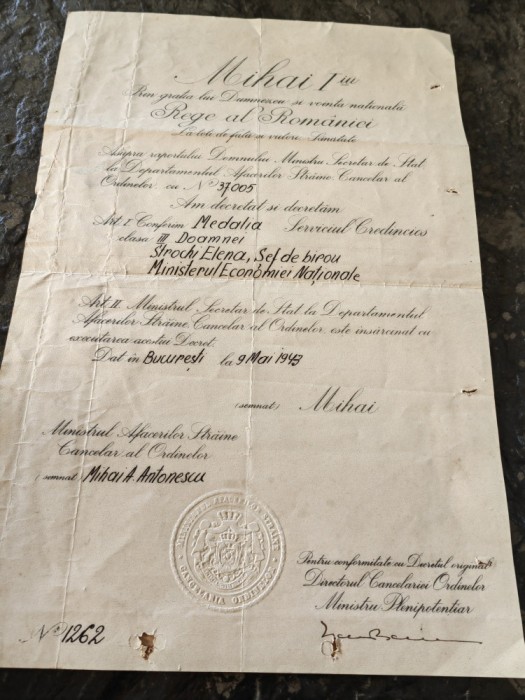 Mihai I iu
Prin grația lui Dumnezeu si voința natională
Rege al României
La toți de față si viitori, Sănătate
Asupra raportului Domnului Ministru Secretar de Stat
la Departamentul Afacerilor Străine Cancelar al
Ordinelor cu No 37005
Am decretat si decretăm
Art. I Conferim Medalia Serviciul Credincios
clasa III Doamnei
Strochi Elena, Șef de birou
Ministerul Economiei Naționale
Art. II. Ministrul Secretar de Stat la Departamentul
Afacerilor Străine, Cancelar al Ordinelor, este însărcinat cu
executarea acestui Decret.
Dat în București la 9 Mai 1943
(semnat) Mihai
Ministrul Afacerilor Străine
Cancelar al Ordinelor
(semnat) Mihai A. Antonescu
MINISTERUL AFACERILOR STRĂINE
CANCELARIA ORDINELOR
Pentru conformitate cu Decretul original
Directorul Cancelariei Ordinelor
Ministru Plenipotențiar
No 1262